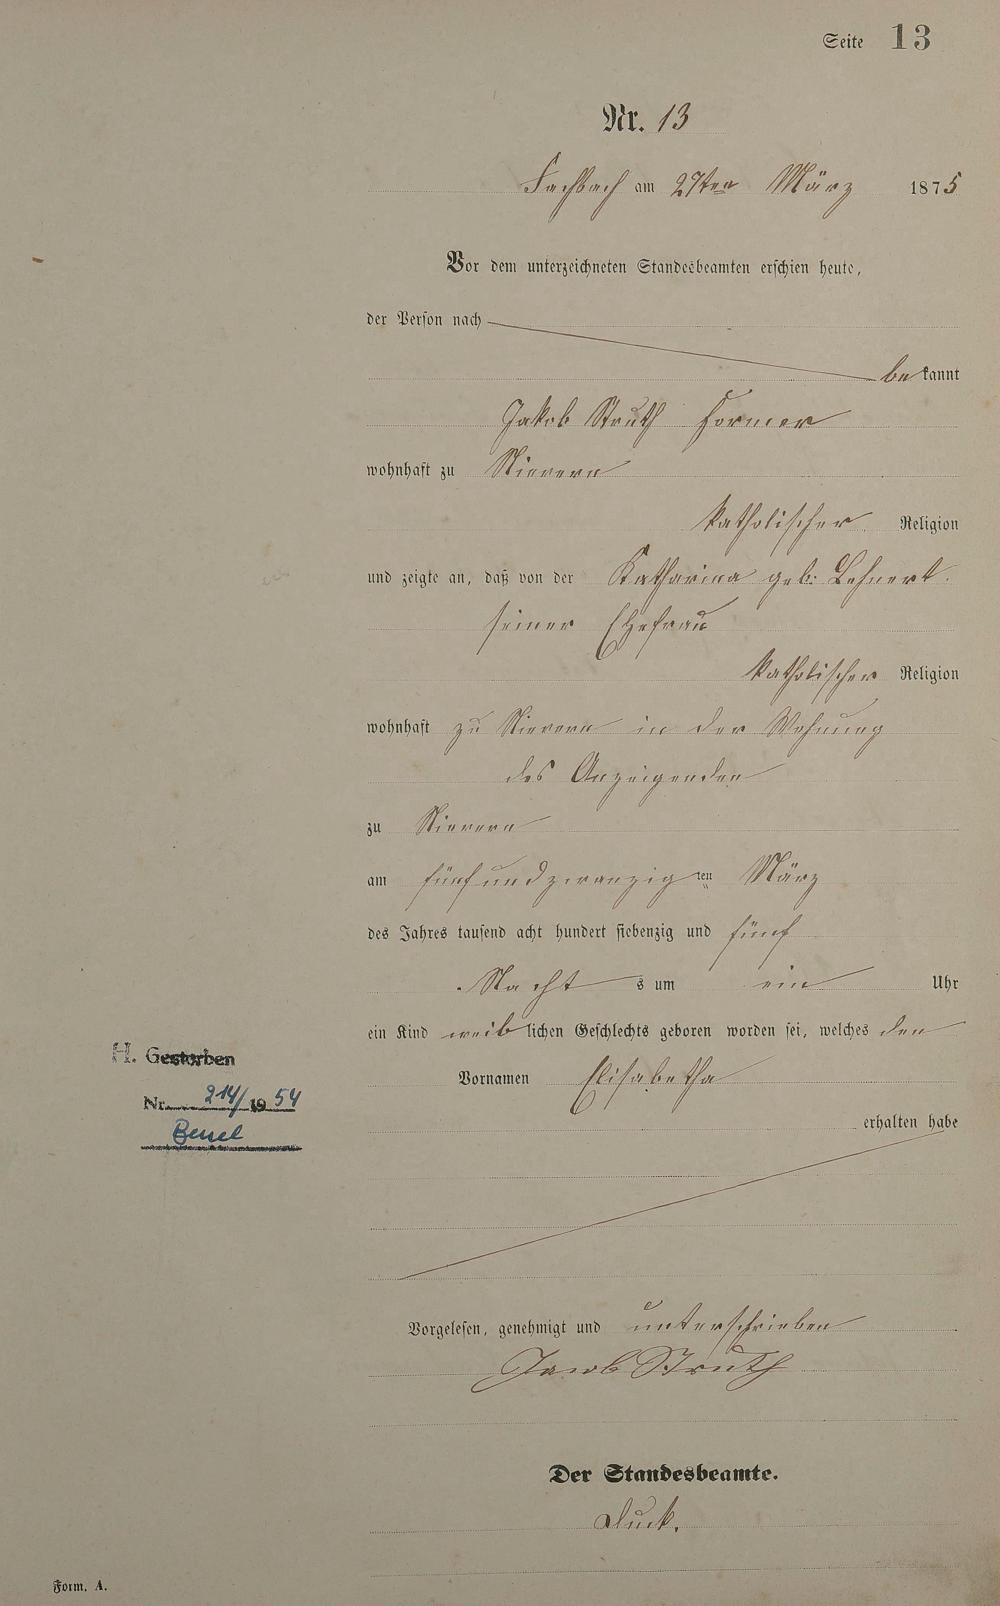 Seite 13
Nr. 13
Fachbach am 27ten März 1875
Vor dem unterzeichneten Standesbeamten erschien heute,
der Person nach
be kannt
Jakob Struth Former
wohnhaft zu Nievern
katholischer Religion
und zeigte an, daß von der Katharina geb: Lehnert
seiner Ehefrau
katholischer Religion
wohnhaft zu Nievern in der Wohnung
des Anzeigenden
zu Nievern
am fünfundzwanzig ten März
des Jahres tausend acht hundert siebenzig und fünf
Nacht s um ein Uhr
ein Kind weib lichen Geschlechts geboren worden sei, welches den
Vornamen Elisabetha
erhalten habe
H. Gestorben
Nr. 214/1954
Vorgelesen, genehmigt und unterschrieben
Jacob Struth
Der Standesbeamte.
Form. A.